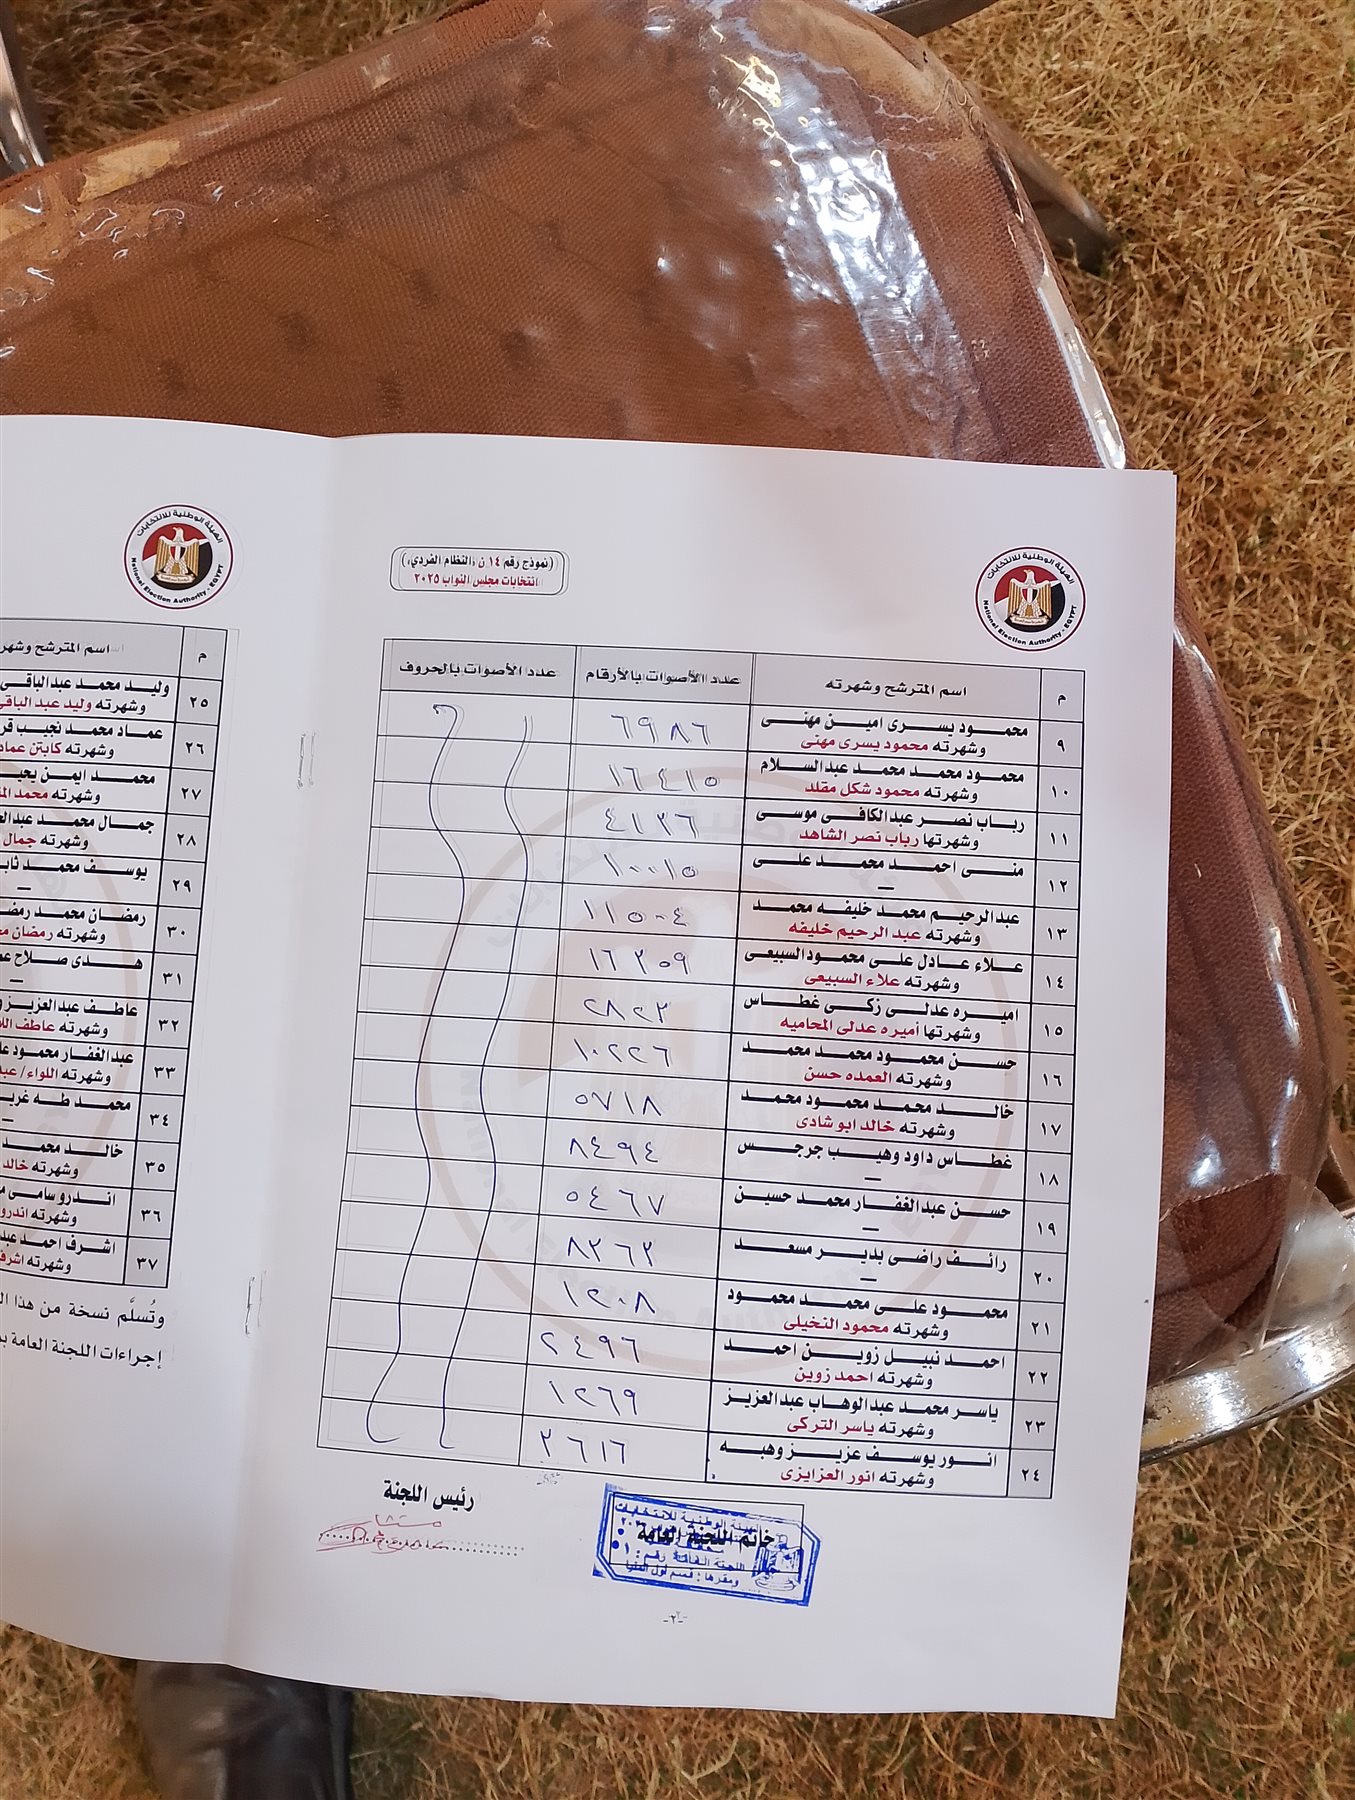 الهيئة الوطنية للانتخابات
National Election Authority - EGYPT
(نموذج رقم ١٤ ن "النظام الفردي")
انتخابات مجلس النواب ٢٠٢٥
م اسم المترشح وشهرته عدد الأصوات بالأرقام عدد الأصوات بالحروف
٩ محمود يسرى امين مهنى ٦٩٨٦
وشهرته محمود يسرى مهنى
١٠ محمود محمد محمد عبدالسلام ١٦٤١٥
وشهرته محمود شكل مقلد
١١ رباب نصر عبدالكافى موسى ٤١٣٦
وشهرتها رباب نصر الشاهد
١٢ منى احمد محمد على ١٠٠١٥
–
١٣ عبدالرحيم محمد خليفه محمد ١١٥٠٤
وشهرته عبد الرحيم خليفه
١٤ علاء عادل على محمود السبيعى ١٦٣٥٩
وشهرته علاء السبيعى
١٥ اميره عدلى زكى غطاس ٢٨٢٣
وشهرتها أميره عدلى المحاميه
١٦ حسن محمود محمد محمد ١٠٢٢٦
وشهرته العمده حسن
١٧ خالد محمد محمود محمد ٥٧١٨
وشهرته خالد ابو شادى
١٨ غطاس داود وهيب جرجس ٨٤٩٤
–
١٩ حسن عبدالغفار محمد حسين ٥٤٦٧
–
٢٠ رائف راضى بدير مسعد ٨٢٦٢
–
٢١ محمود على محمد محمود ١٢٠٨
وشهرته محمود النخيلى
٢٢ احمد نبيل زوين احمد ٢٤٩٦
وشهرته احمد زوين
٢٣ ياسر محمد عبدالوهاب عبدالعزيز ١٢٦٩
وشهرته ياسر التركى
٢٤ انور يوسف عزيز وهبه ٣٦١٦
وشهرته انور العزايزى
رئيس اللجنة
خاتم اللجنة العامة
الهيئة الوطنية للانتخابات
اللجنة العامة رقم : ١
ومقرها : قسم اول
-٢-
الهيئة الوطنية للانتخابات
National Election Authority - EGYPT
م اسم المترشح وشهر
٢٥ وليد محمد عبدالباقى
وشهرته وليد عبد الباقى
٢٦ عماد محمد نجيب
وشهرته كابتن عماد
٢٧ محمد ايمن
وشهرته محمد
٢٨ جمال محمد
وشهرته جمال
٢٩ يوسف محمد
–
٣٠ رمضان محمد
وشهرته رمضان
٣١ هدى صلاح
–
٣٢ عاطف عبدالعزيز
وشهرته عاطف
٣٣ عبدالغفار محمود
وشهرته اللواء/
٣٤ محمد طه
–
٣٥ خالد محمد
وشهرته خالد
٣٦ اندرو سامى
وشهرته اندرو
٣٧ اشرف احمد
وشهرته اشرف
وتُسلَّم نسخة من هذا
إجراءات اللجنة العامة